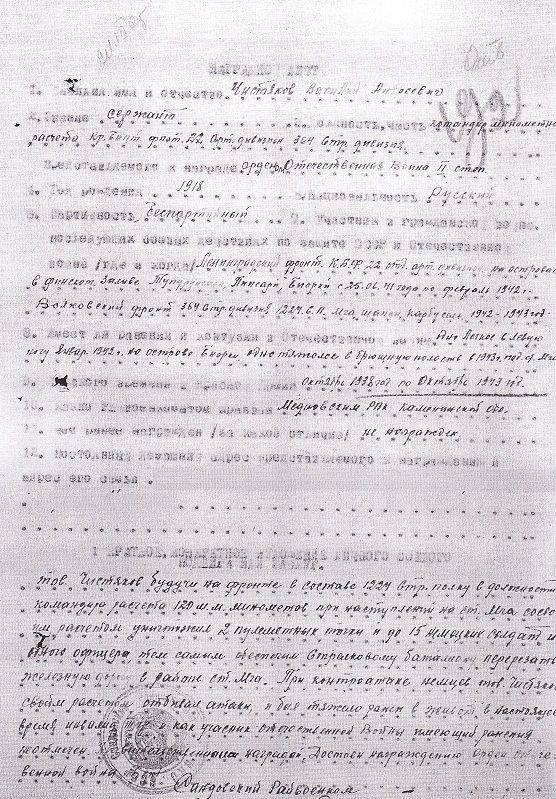 НАГРАДНОЙ ЛИСТ
1. Фамилия имя и отчество Чистяков Василий
2. Звание сержант 3. Должность, часть командир минометного
расчета Кр. Знам. флот. 22 Арт. дивизион 364 Стр. дивизия.
Представляемого к награде орден Отечественная Война II степ.
4. Год рождения 1918 5. Национальность Русский
6. Партийность Беспартийный 7. Участник в гражданской войне,
последующих боевых действиях по защите СССР и Отечественной
войне /где и когда/ Ленинградский фронт К.Б.Ф. 22 отд. арт. дивизион, на островах
в финском заливе Пенсари, Второй с 25.06.41 года по февраль 1942 г.
Волховский фронт 364 Стр. дивизия 1224 с.п. Мга 1942-1943 год.
8. Имеет ли ранения и контузии в Отечественной войне Одно легкое в левую
ногу Январь 1942 г. на острове одно тяжолое в брюшную полость в 1943 г. под г. Мга
9. С какого времени в Красной Армии Октябрь 1938 год по Октябрь 1943 год.
10. Каким Райвоенкоматом призван Медновским РВК Калининской обл.
11. Чем ранее награжден /за какое отличие/ не награжден
12. Постоянный домашний адрес представляемого к награждению и
адрес его семьи.
1 КРАТКОЕ, КОНКРЕТНОЕ ИЗЛОЖЕНИЕ ЛИЧНОГО БОЕВОГО
ПОДВИГА ИЛИ ЗАСЛУГ.
тов. Чистяков будучи на фронте в составе 1224 Стр. полку в должности
командира расчета 120 м.м. минометов при наступлении на ст. Мга со своим
расчетом уничтожил 2 пулеметных точки и до 15 немецких солдат и
одного офицера тем самым обеспечил Стрелковому баталиону перерезать
железную дорогу в районе ст. Мга. При контратаке немцев тов. Чистяков
своим расчетом отбивал атаки, в боя тяжело ранен в живот, в настоящее
время инвалид как участник отечественной войны имеющий ранения
не отмечен правительственной наградой. Достоин награждению Орден отечественной
война
Райвоенком